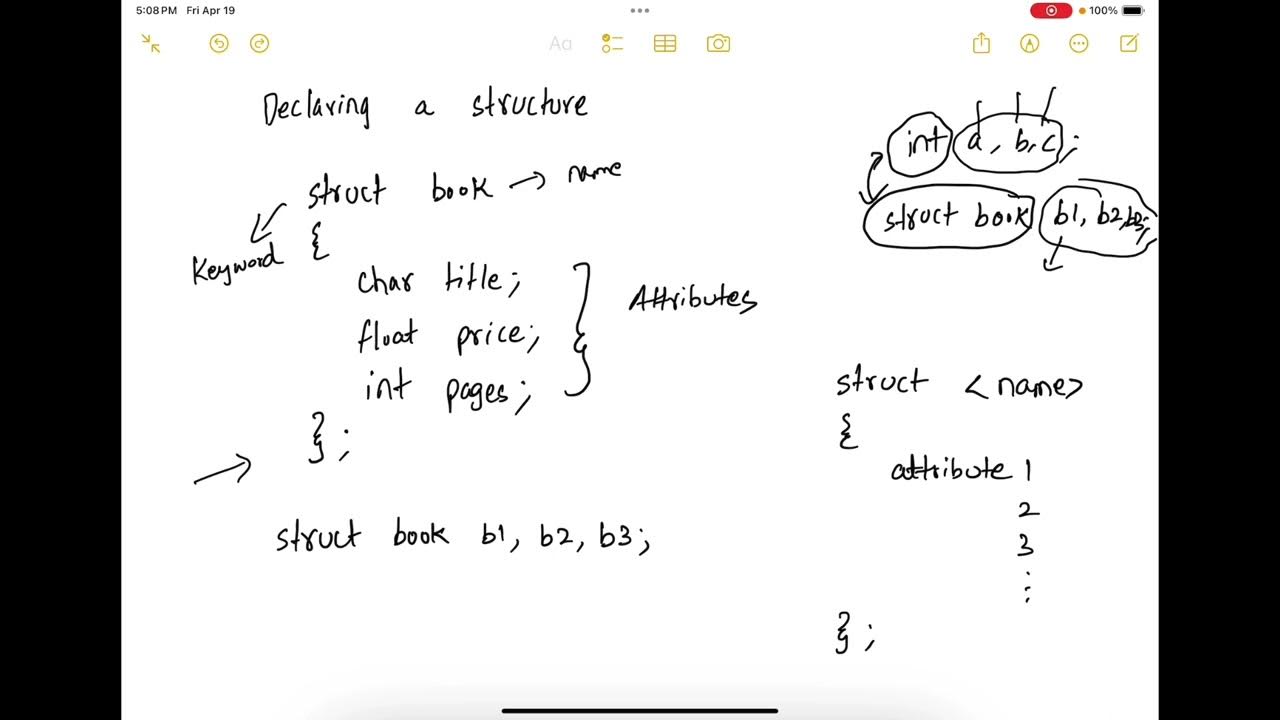 5:08 PM Fri Apr 19
100%
Aa
Declaring a structure
struct book → name
Keyword
{
char title;
float price;
int pages;
Attributes
};
struct book b1, b2, b3;
int a, b, c;
struct book b1, b2, b3;
struct <name>
{
attribute 1
2
3
⋮
};